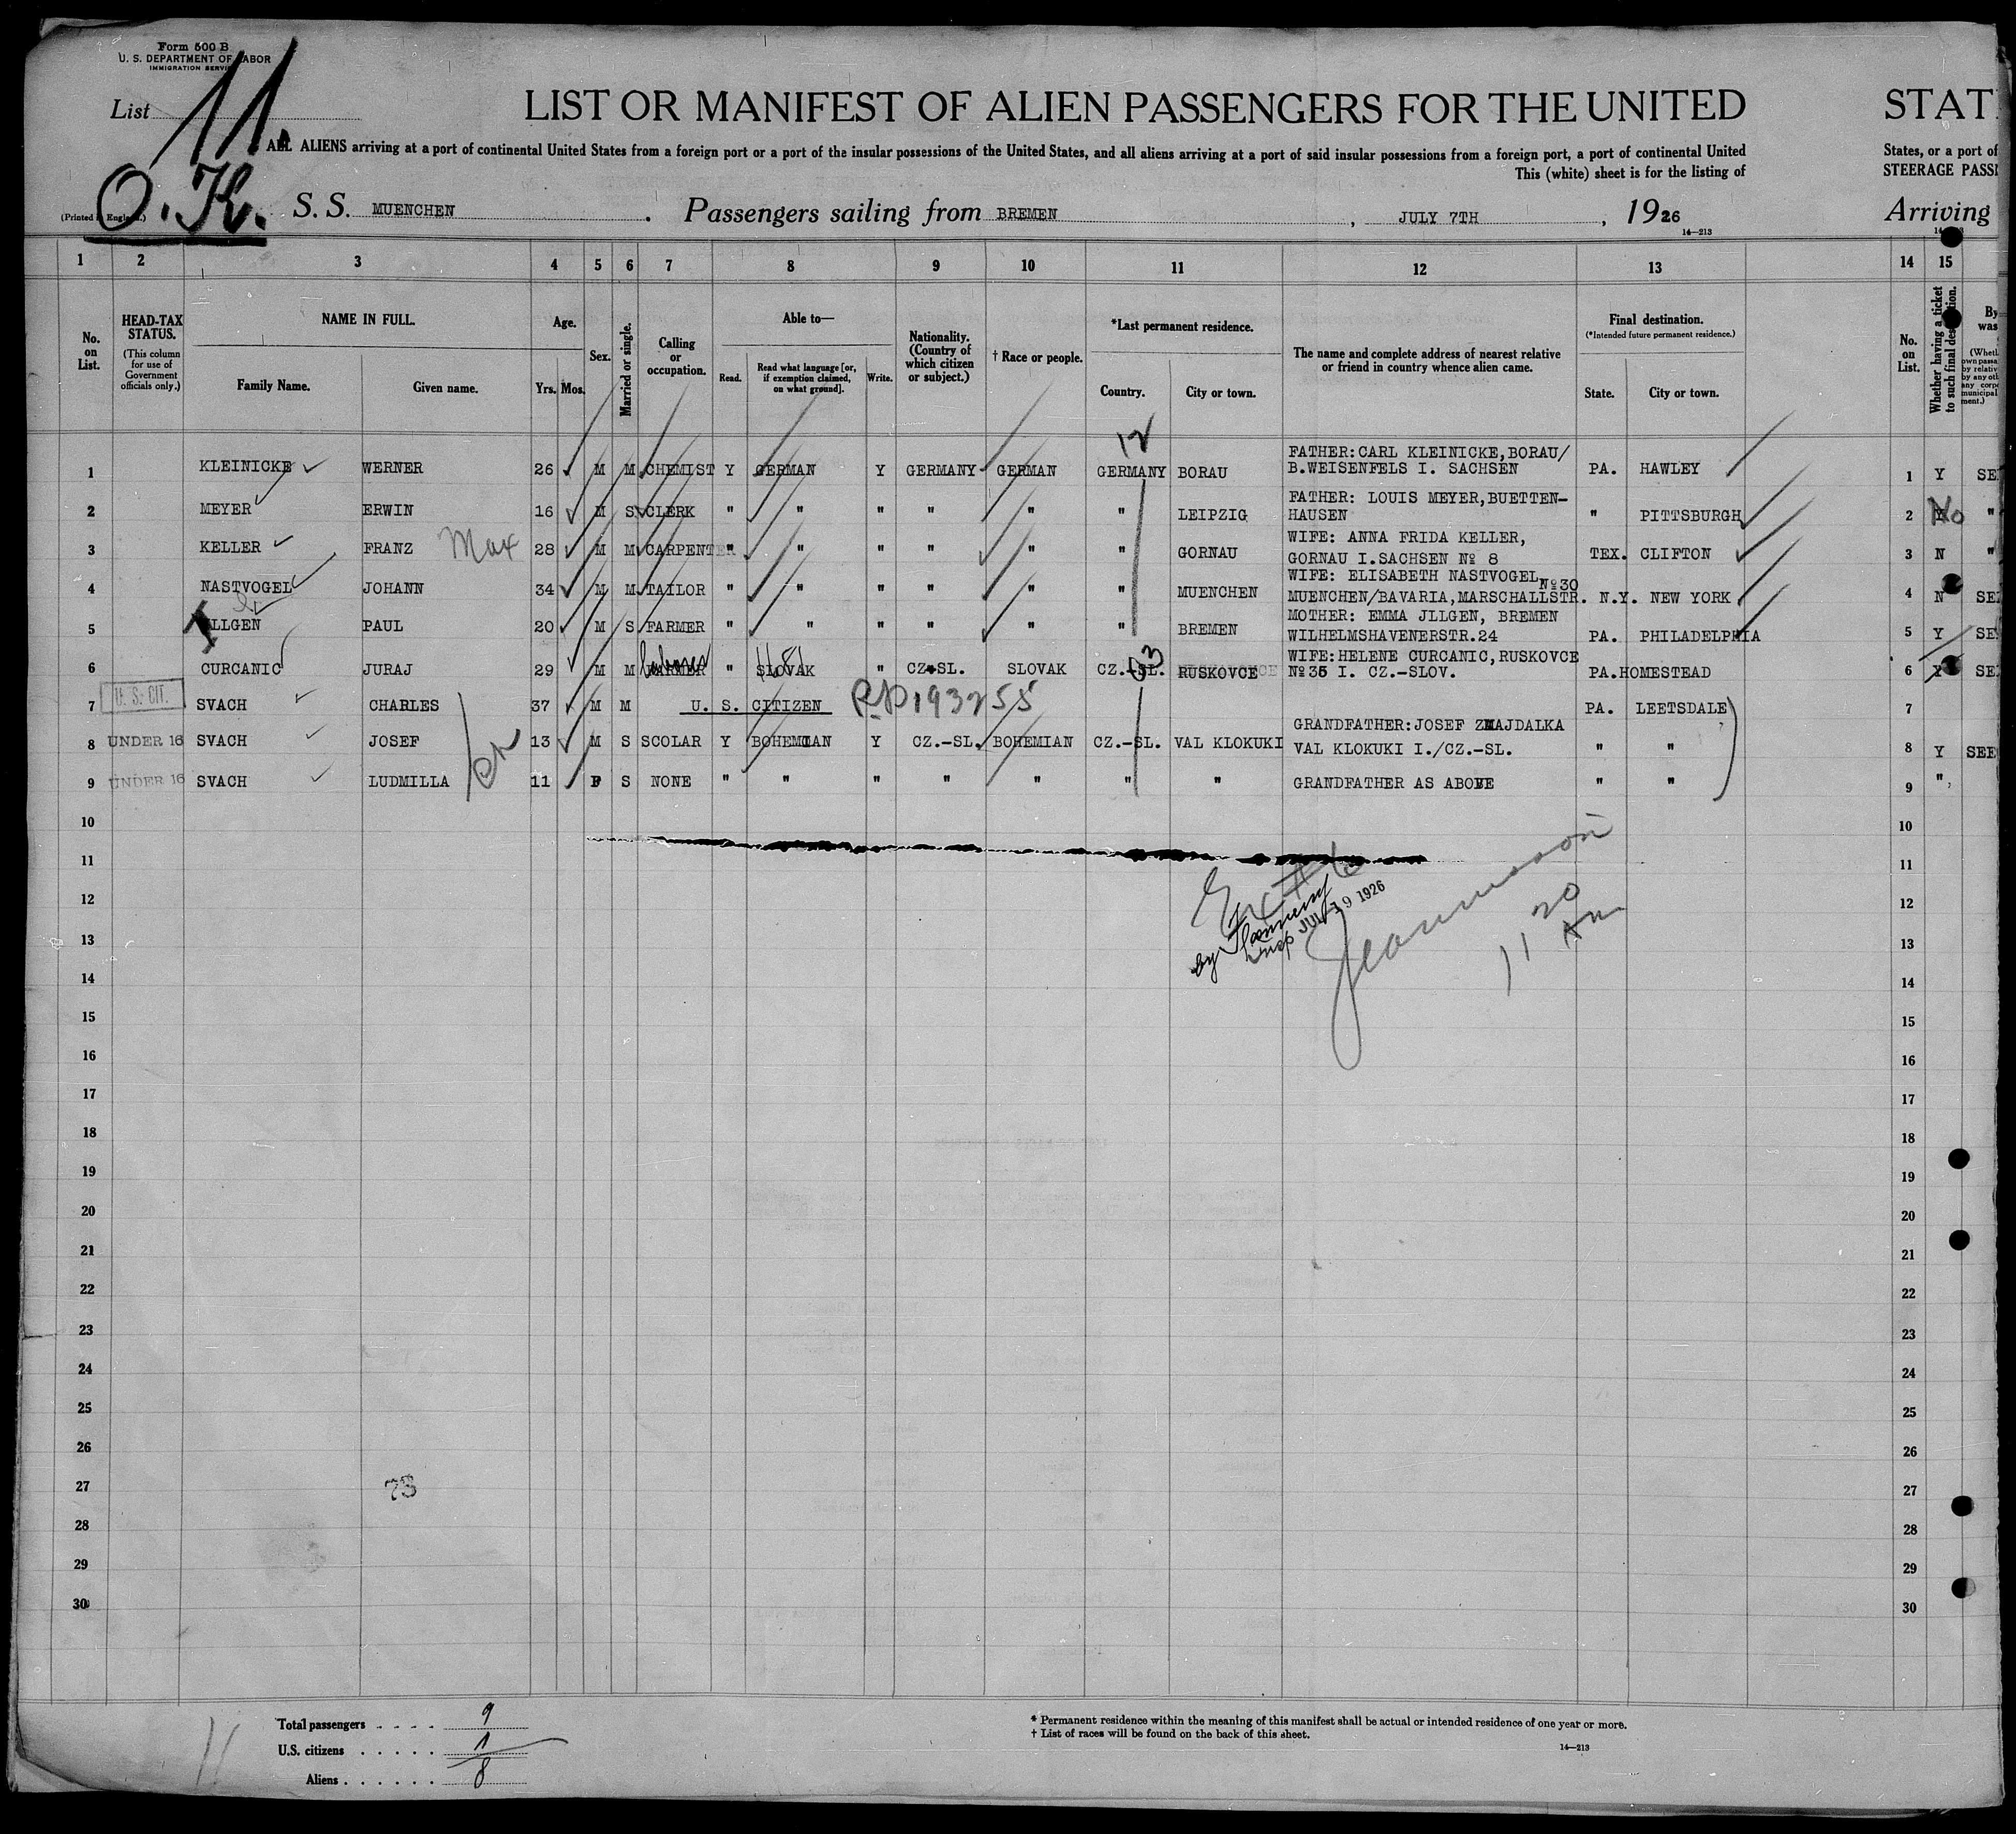 Form 500 B
U. S. DEPARTMENT OF LABOR
IMMIGRATION SERVICE
List 11.
O. K.
LIST OR MANIFEST OF ALIEN PASSENGERS FOR THE UNITED STAT
ALL ALIENS arriving at a port of continental United States from a foreign port or a port of the insular possessions of the United States, and all aliens arriving at a port of said insular possessions from a foreign port, a port of continental United States, or a port of
This (white) sheet is for the listing of STEERAGE PASS
(Printed in England.) S. S. MUENCHEN . Passengers sailing from BREMEN , JULY 7TH , 1926 Arriving
14—213
1 2 3 4 5 6 7 8 9 10 11 12 13 14 15
No. on List. HEAD-TAX STATUS. (This column for use of Government officials only.) NAME IN FULL. Family Name. Given name. Age. Yrs. Mos. Sex. Married or single. Calling or occupation. Able to— Read. Read what language [or, if exemption claimed, on what ground]. Write. Nationality. (Country of which citizen or subject.) † Race or people. *Last permanent residence. Country. City or town. The name and complete address of nearest relative or friend in country whence alien came. Final destination. (*Intended future permanent residence.) State. City or town. No. on List. Whether having a ticket to such final destination. By was
12
FATHER:CARL KLEINICKE,BORAU/
1 KLEINICKE WERNER 26 M M CHEMIST Y GERMAN Y GERMANY GERMAN GERMANY BORAU B.WEISENFELS I. SACHSEN PA. HAWLEY 1 Y SE
FATHER: LOUIS MEYER,BUETTEN-
2 MEYER ERWIN 16 M S CLERK " " " " " " LEIPZIG HAUSEN " PITTSBURGH 2 No "
WIFE: ANNA FRIDA KELLER,
3 KELLER FRANZ Max 28 M M CARPENTER " " " " " " GORNAU GORNAU I.SACHSEN № 8 TEX. CLIFTON 3 N "
WIFE: ELISABETH NASTVOGEL №30
4 NASTVOGEL JOHANN 34 M M TAILOR " " " " " " MUENCHEN MUENCHEN/BAVARIA,MARSCHALLSTR. N.Y. NEW YORK 4 N SE
MOTHER: EMMA JLLGEN, BREMEN
5 ILLGEN PAUL 20 M S FARMER " " " " " " BREMEN WILHELMSHAVENERSTR.24 PA. PHILADELPHIA 5 Y SE
03
WIFE:HELENE CURCANIC,RUSKOVCE
6 CURCANIC JURAJ 29 M M FARMER laborer " SLOVAK " CZ-SL. SLOVAK CZ.-SL. RUSKOVCE №35 I. CZ.-SLOV. PA. HOMESTEAD 6 Y SE
U. S. CIT.
7 SVACH CHARLES 37 M M U. S. CITIZEN 193255 PA. LEETSDALE 7
GRANDFATHER:JOSEF ZMAJDALKA
8 UNDER 16 SVACH JOSEF 13 M S SCOLAR Y BOHEMIAN Y CZ.-SL. BOHEMIAN CZ.-SL. VAL KLOKUKI VAL KLOKUKI I./CZ.-SL. " " 8 Y SEE
9 UNDER 16 SVACH LUDMILLA 11 F S NONE " " " " " " " GRANDFATHER AS ABOVE " " 9 "
10 10
11 11
12 JUL 19 1926 12
by 11 20 AM
13 13
14 14
15 15
16 16
17 17
18 18
19 19
20 20
21 21
22 22
23 23
24 24
25 25
26 26
27 73 27
28 28
29 29
30 30
11
Total passengers . . . . 9
U.S. citizens . . . . . 1
Aliens . . . . . . 8
* Permanent residence within the meaning of this manifest shall be actual or intended residence of one year or more.
† List of races will be found on the back of this sheet.
14—213